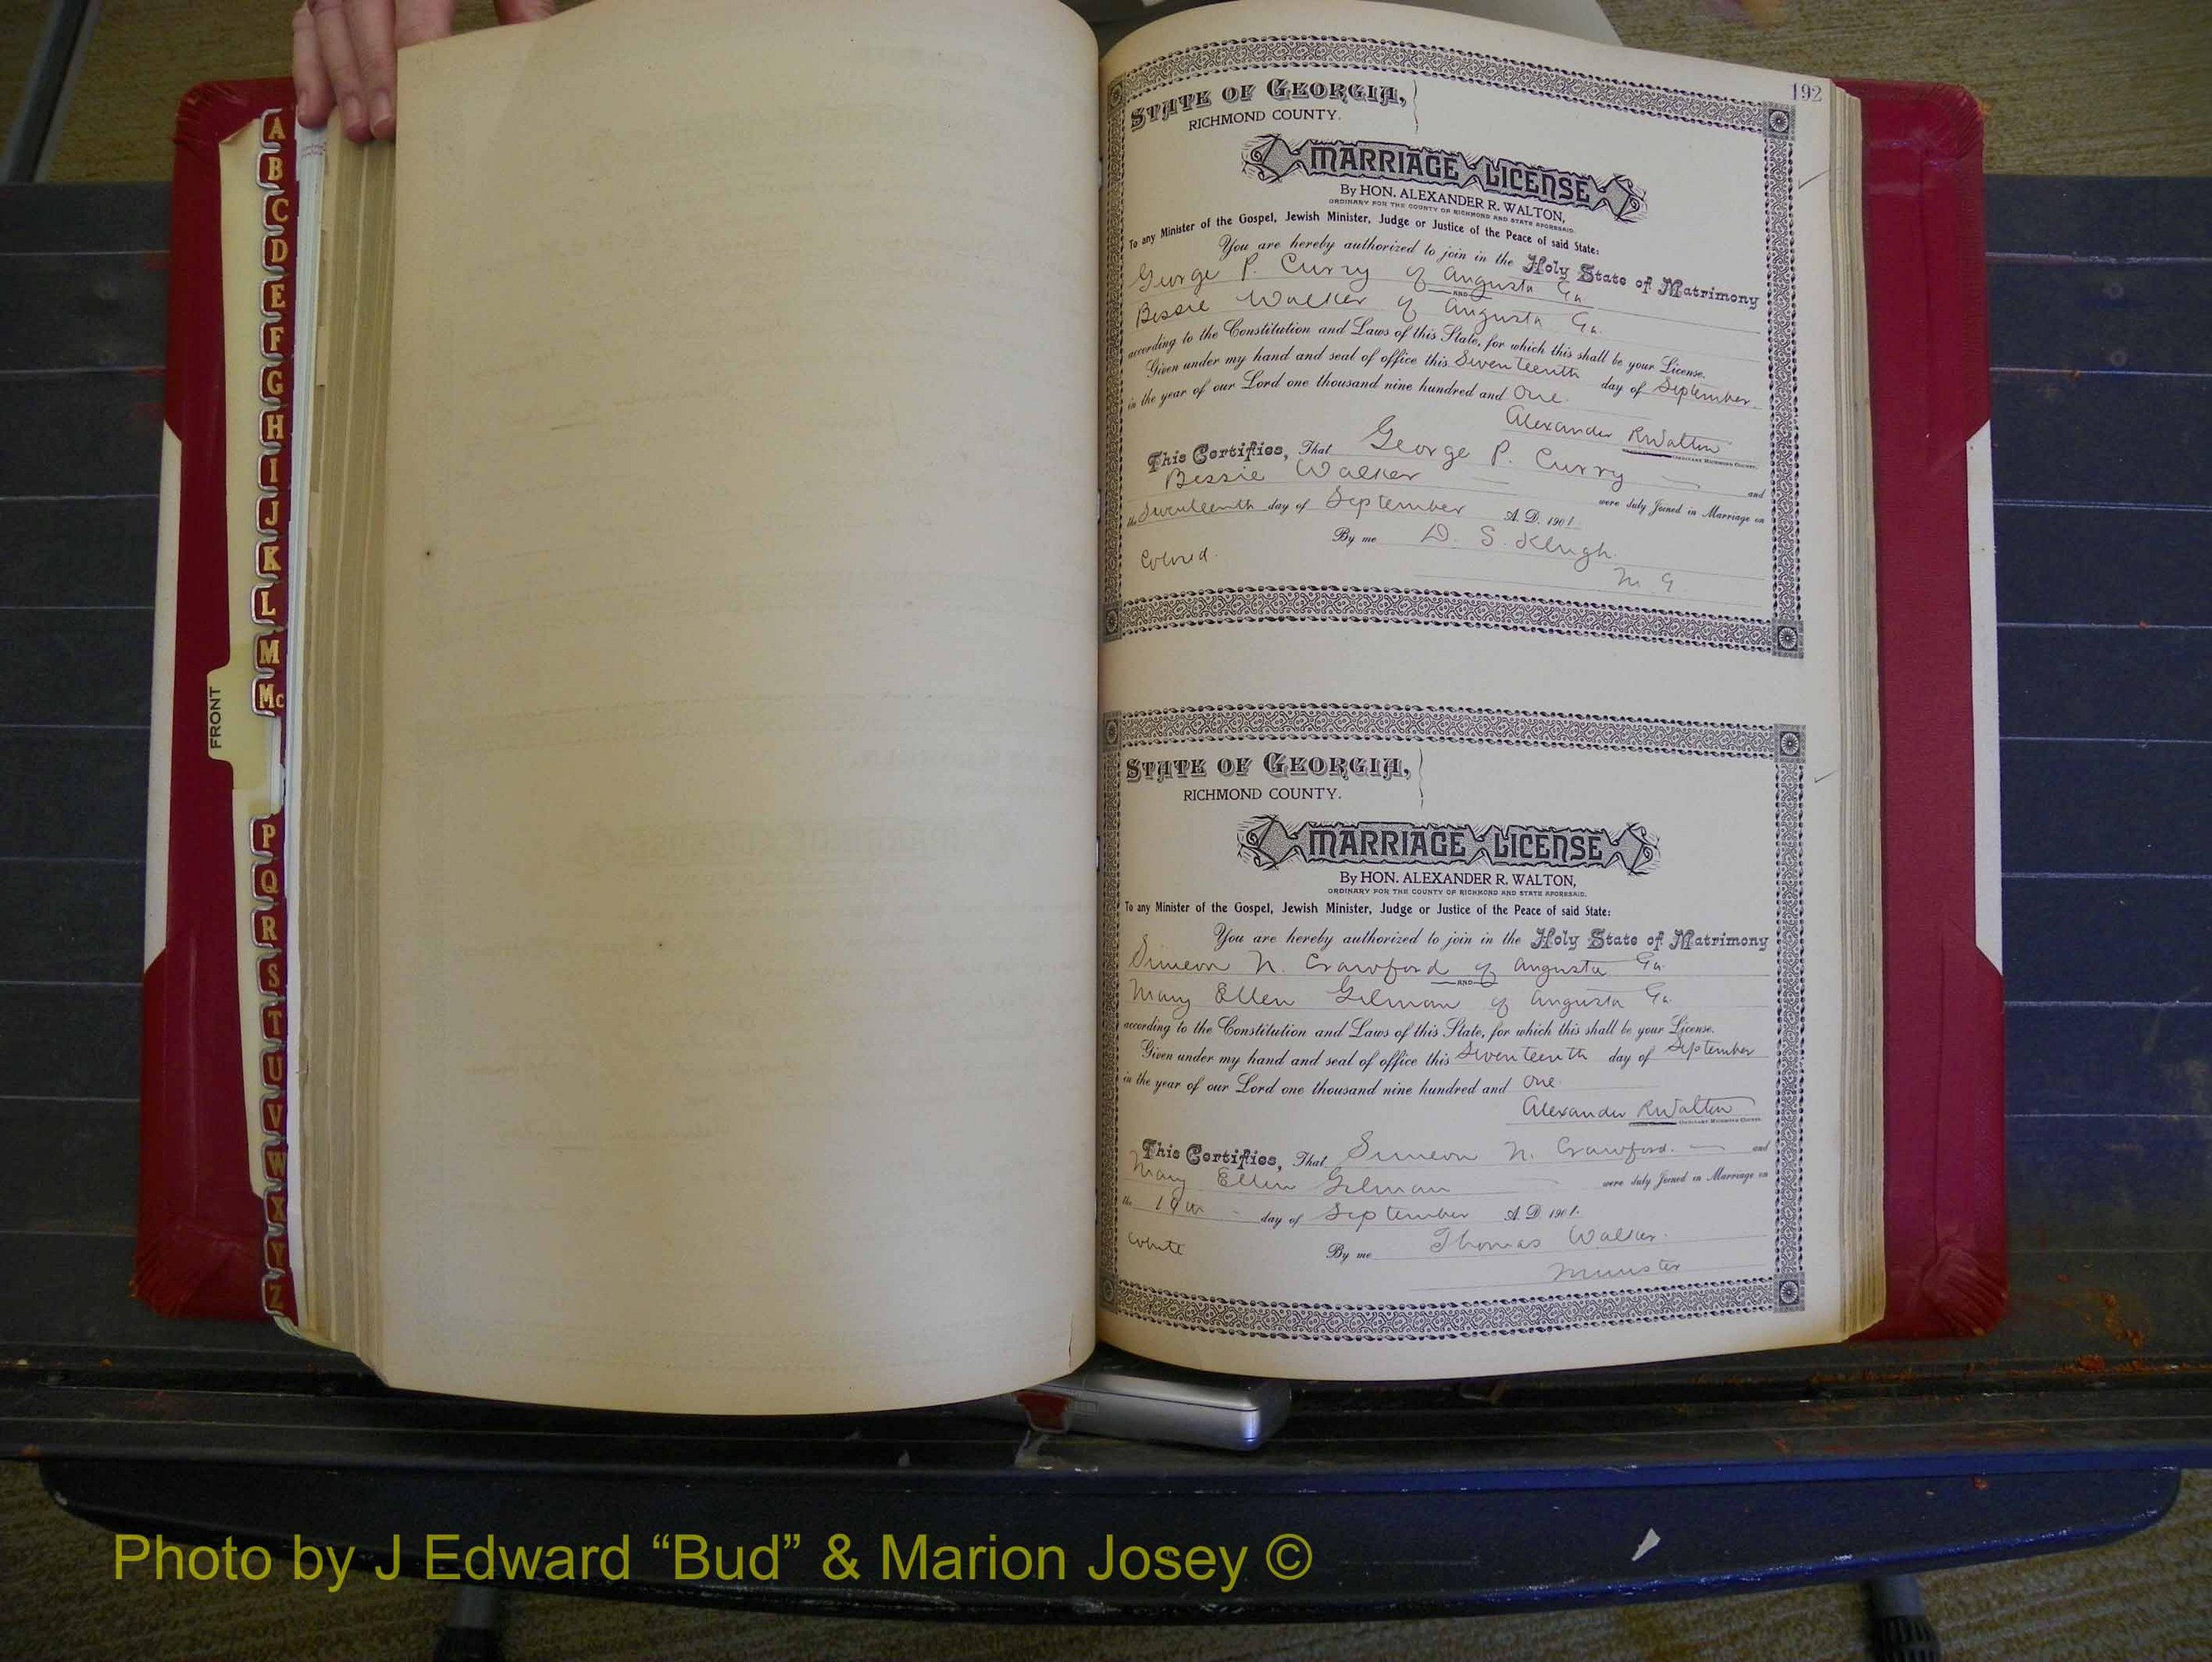 A
B
C
D
E
F
G
H
I
J
K
L
M
Mc
FRONT
P
Q
R
S
T
U
V
W
X
Y
Z
192
STATE OF GEORGIA,
RICHMOND COUNTY.
MARRIAGE LICENSE
By HON. ALEXANDER R. WALTON,
ORDINARY FOR THE COUNTY OF RICHMOND AND STATE AFORESAID.
To any Minister of the Gospel, Jewish Minister, Judge or Justice of the Peace of said State:
You are hereby authorized to join in the Holy State of Matrimony
George P. Curry of Augusta Ga
AND
Bessie Walker of Augusta Ga.
according to the Constitution and Laws of this State, for which this shall be your License.
Given under my hand and seal of office this Seventeenth day of September
in the year of our Lord one thousand nine hundred and One
Alexander R Walton
ORDINARY RICHMOND COUNTY.
This Certifies, That George P. Curry and
Bessie Walker were duly Joined in Marriage on
the Seventeenth day of September A. D. 1901.
By me D. S. Klugh.
Colored.
M. G.
STATE OF GEORGIA,
RICHMOND COUNTY.
MARRIAGE LICENSE
By HON. ALEXANDER R. WALTON,
ORDINARY FOR THE COUNTY OF RICHMOND AND STATE AFORESAID.
To any Minister of the Gospel, Jewish Minister, Judge or Justice of the Peace of said State:
You are hereby authorized to join in the Holy State of Matrimony
Simeon N. Crawford of Augusta Ga
AND
Mary Ellen Gilman of Augusta Ga.
according to the Constitution and Laws of this State, for which this shall be your License.
Given under my hand and seal of office this Seventeenth day of September
in the year of our Lord one thousand nine hundred and One
Alexander R Walton
ORDINARY RICHMOND COUNTY.
This Certifies, That Simeon N. Crawford. and
Mary Ellen Gilman were duly Joined in Marriage on
the 19th day of September A. D. 1901.
White By me Thomas Walker.
Minister
Photo by J Edward “Bud” & Marion Josey ©